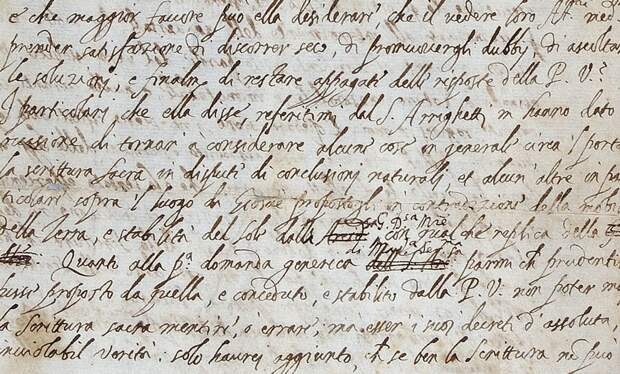 e che maggior favore può ella desiderare che il vedere loro Al. med
prender satisfazione di discorrer seco, di promuovergli dubbij, di ascoltar
le soluzioni, e finalm.e di restare appagati delle risposte della P. V.a
I particolari che ella disse, referitimi dal S. Arrighetti m hanno dato
cassione di tornar à considerare alcune cose in generale circa 'l porta
la scrittura sacra in dispute di conclusioni naturali, et alcun' altre in pa
ticolare sopra 'l luogo di Giosue propostogli in contradizione della mobi
della Terra, e stabilità del Sole dalla G. D.sa M.re con qualche replica della
Quanto alla p.a domanda generica di Mad.a Ser.ma parmi ch prudentis
fusse proposto da quella, e conceduto, e stabilito dalla P. V. non poter ma
la Scrittura sacra mentire, ò errare, ma esser i suoi decreti d'assoluta,
inviolabil verità: solo haurei aggiunto, ch se ben la Scrittura nō può